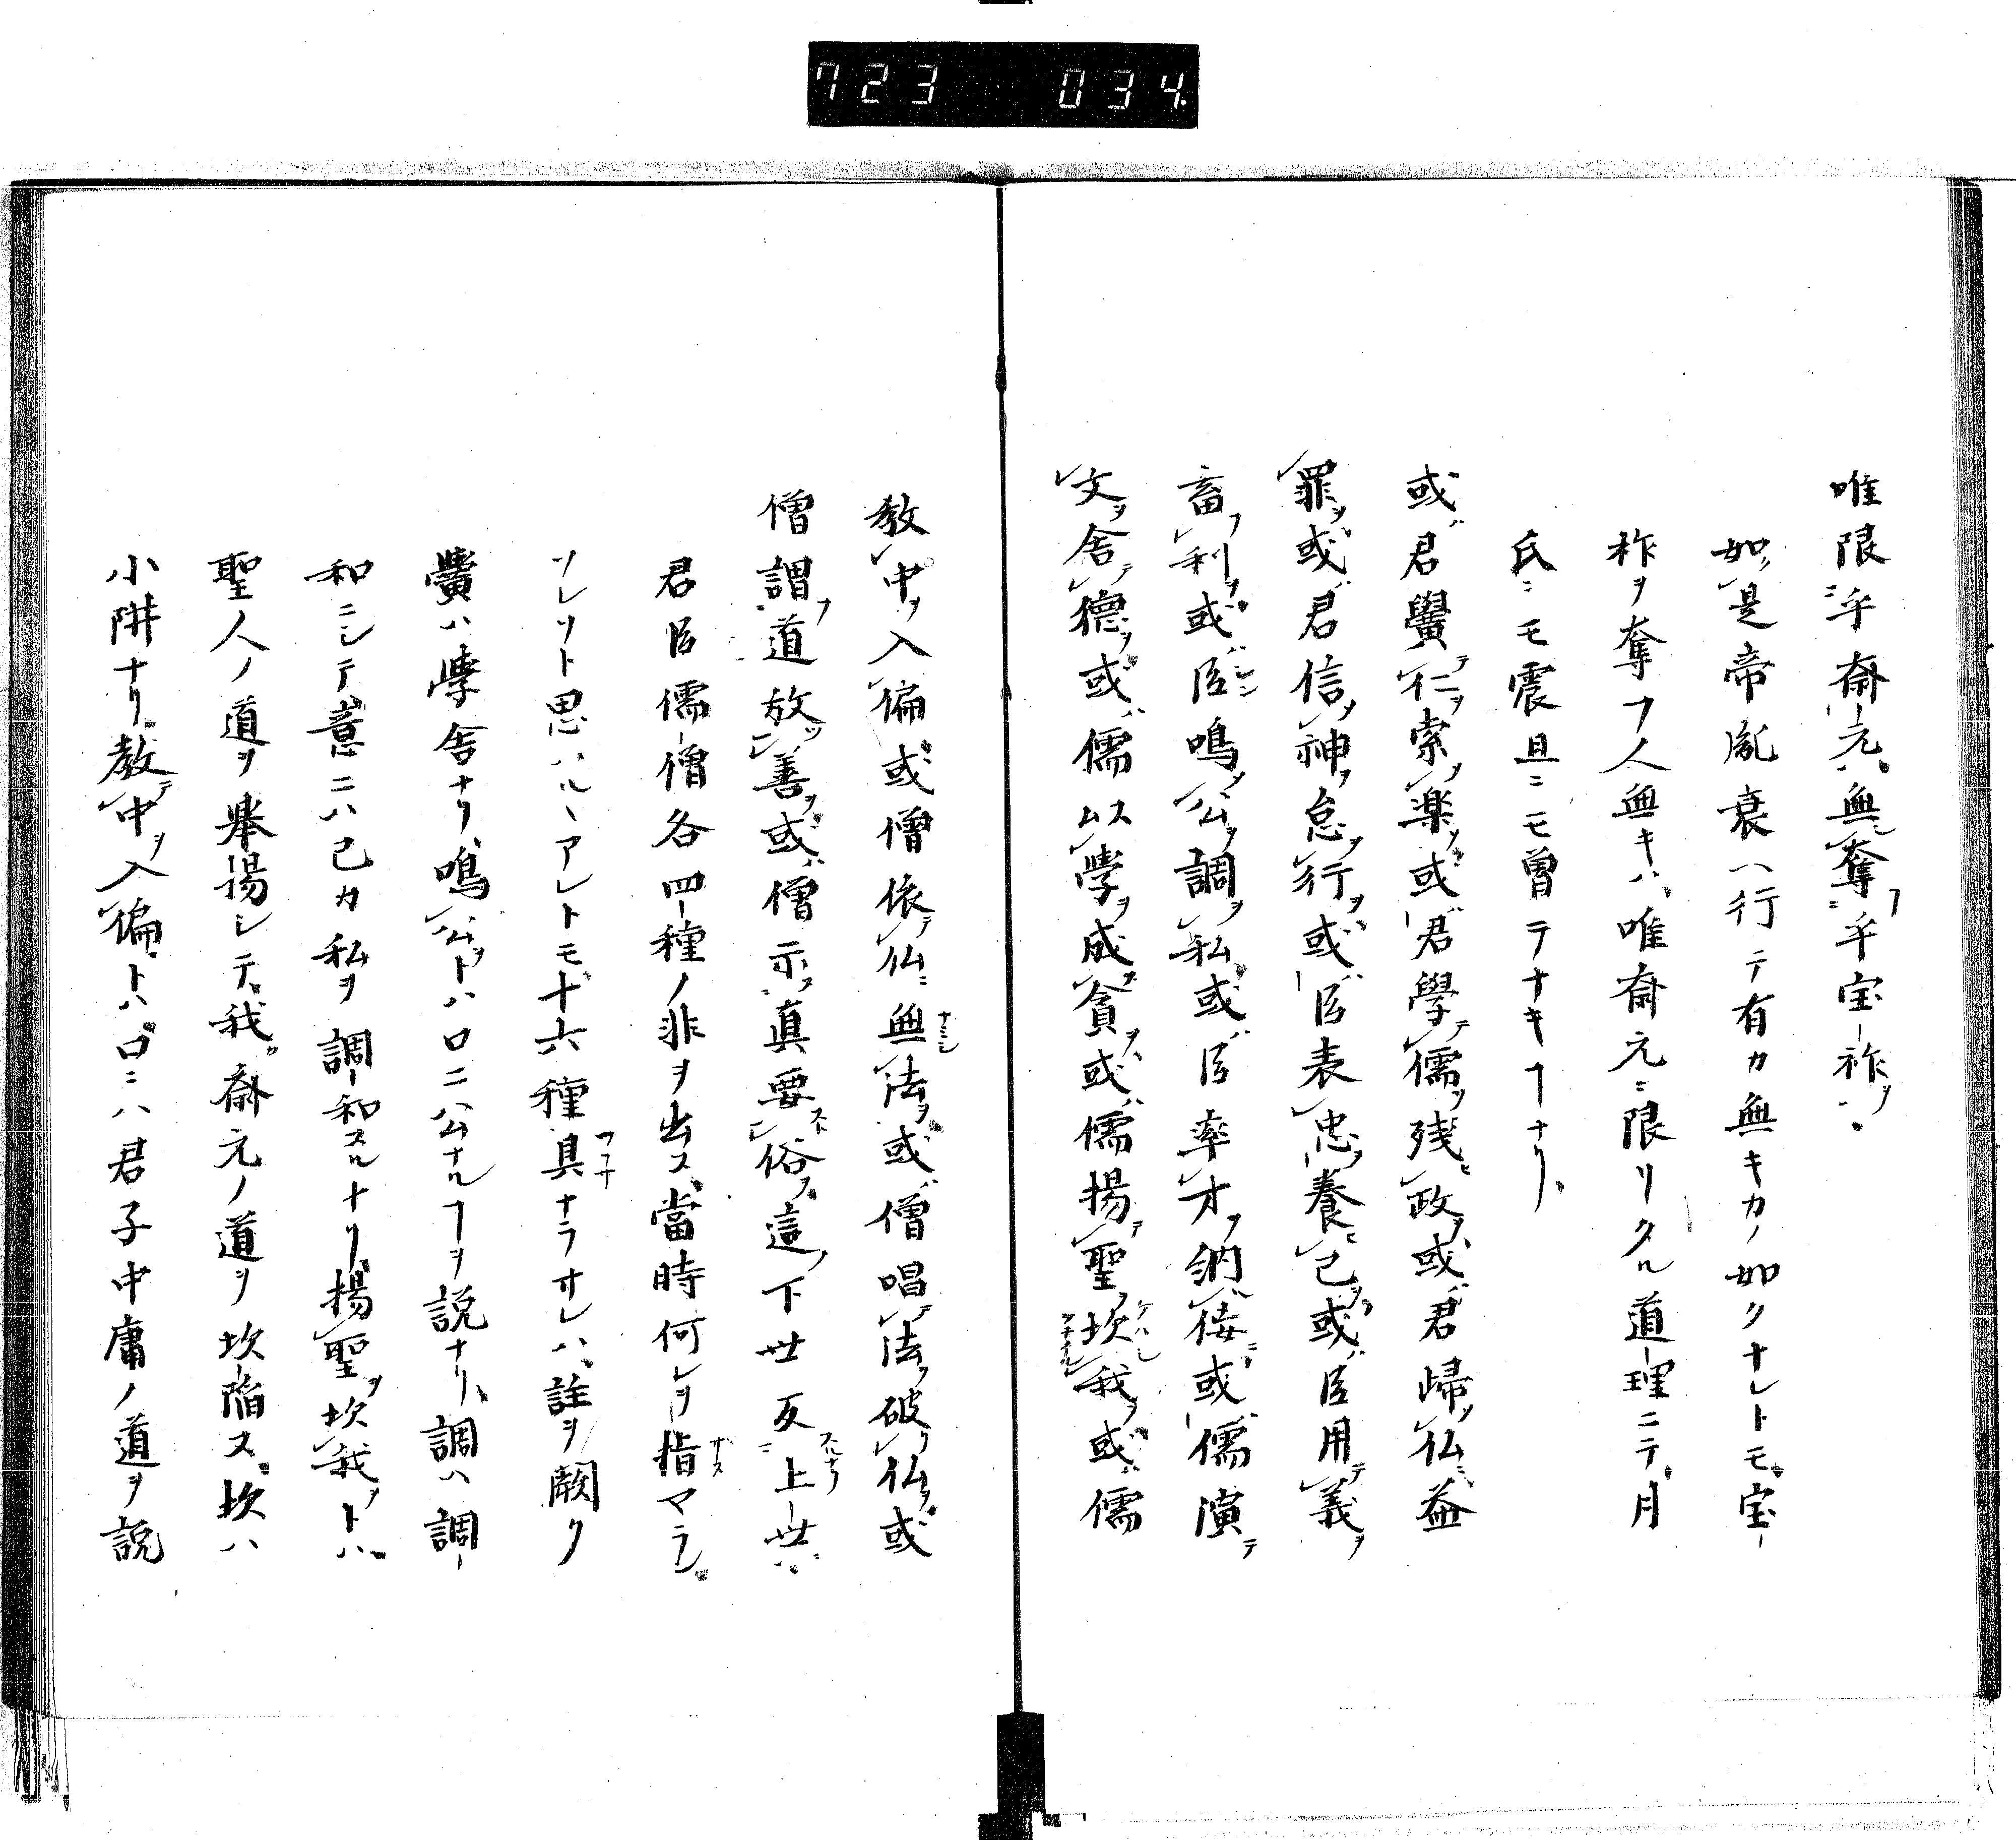 723 034
唯限乎斎元無奪乎宝祚
如是帝胤衰ヘ行テ有カ無キカノ如クナレトモ宝
祚ヲ奪フ人無キハ唯斎元ニ限リタル道理ニテ月
氏ニモ震旦ニモ曽テナキヿナリ
或君黌仁索楽或君學儒残政或君帰仏益
罪或君信神怠行或臣表忠養己或臣用義
畜利或臣鳴公調私或臣率才納侫或儒演
文舎德或儒以學成貪或儒揚聖坎我或儒
教中入偏或僧依仏無法或僧唱法破仏或
僧謂道放善或僧示真要俗這下世反上世
君臣儒僧各四種ノ非ヲ出ス當時何レヲ指マラシ
ソレソト思ハルヽアレトモ十六種具ナラサレハ註ヲ闕ク
黌ハ學舎ナリ鳴公トハ口ニハ公ナルヿヲ説ナリ調ハ調
和ニシテ意ニハ己カ私ヲ調和スルナリ揚聖坎我トハ
聖人ノ道ヲ挙揚シテ我斎元ノ道ヲ坎陥ス坎ハ
小阱ナリ教中入偏トハ口ニハ君子中庸ノ道ヲ説